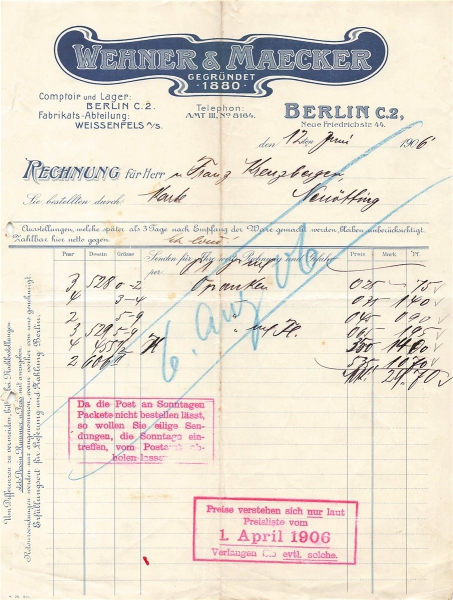 WEHNER & MAECKER
GEGRÜNDET
1880
Comptoir und Lager:
BERLIN C. 2.
Fabrikats-Abteilung:
WEISSENFELS a/S.
Telephon:
AMT III, No 8164.
BERLIN C. 2,
Neue Friedrichstr. 44.
den 12ten Juni 1906
RECHNUNG für Herrn Franz Kreuzberger,
Sie bestellten durch Karte Neuötting
Ausstellungen, welche später als 3 Tage nach Empfang der Ware gemacht werden, bleiben unberücksichtigt.
Zahlbar hier netto gegen
Paar Dessin Grösse Senden für Ihre werte Rechnung und Gefahr Preis Mark Pf.
per Franken
3 5280 0-2 0 25 - 75
4 3-4 0 35 1 40
2 5-9 0 45 0 90
3 529 5-9 0 65 1 95
4
2
29.70
6. Aug 06
Um Differenzen zu vermeiden, bitte bei Nachbestellungen
stets Dessin-Nummer u. Preis mit anzugeben.
Retoursendungen werden nur angenommen, wenn vorher von uns genehmigt.
Erfüllungsort für Lieferung und Zahlung Berlin.
Da die Post an Sonntagen
Packete nicht bestellen lässt,
so wollen Sie eilige Sen-
dungen, die Sonntags ein-
treffen, vom Postamt ab-
holen lassen
Preise verstehen sich nur laut
Preisliste vom
1. April 1906
Verlangen Sie evtl. solche.